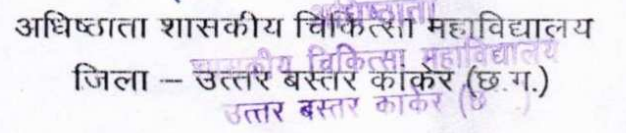 अधिष्ठाता शासकीय चिकित्सा महाविद्यालय
जिला – उत्तर बस्तर कांकेर (छ.ग.)
अधिष्ठाता
शासकीय चिकित्सा महाविद्यालय
उत्तर बस्तर कांकेर (छ